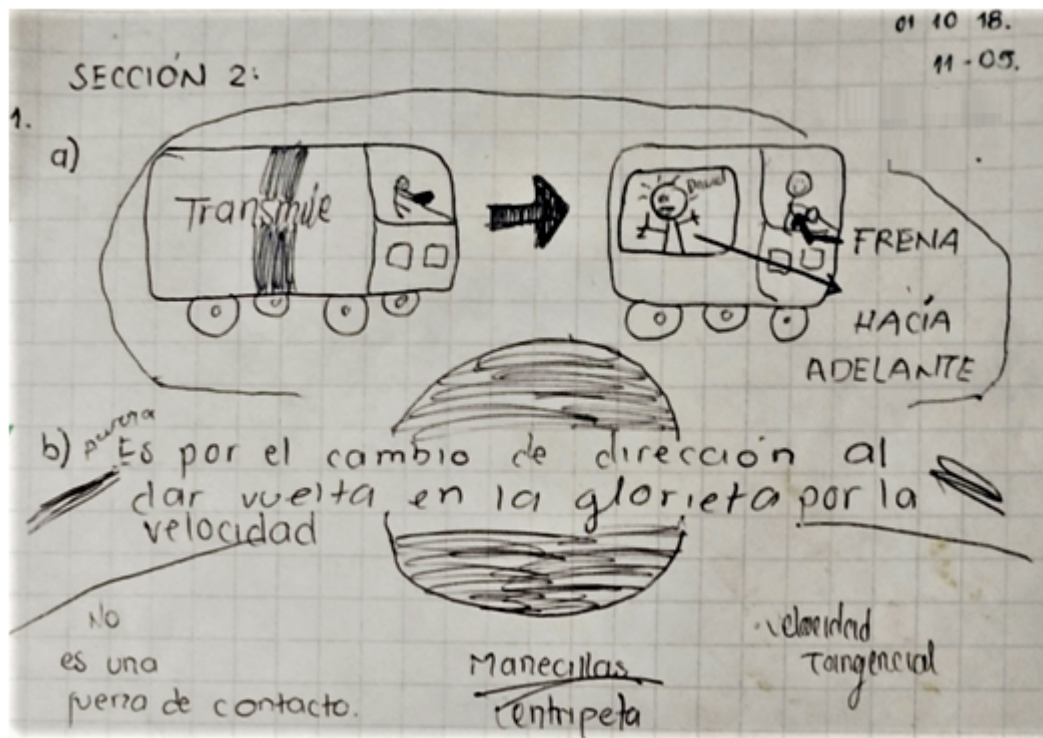 01 10 18.
11-05.
SECCIÓN 2:
1.
a)
Transmile
David
FRENA
HACÍA
ADELANTE
b) Es por el cambio de dirección al
dar vuelta en la glorieta por la
velocidad
No
es una
fuerza de contacto.
Manecillas
Centripeta
velocidad
Tangencial